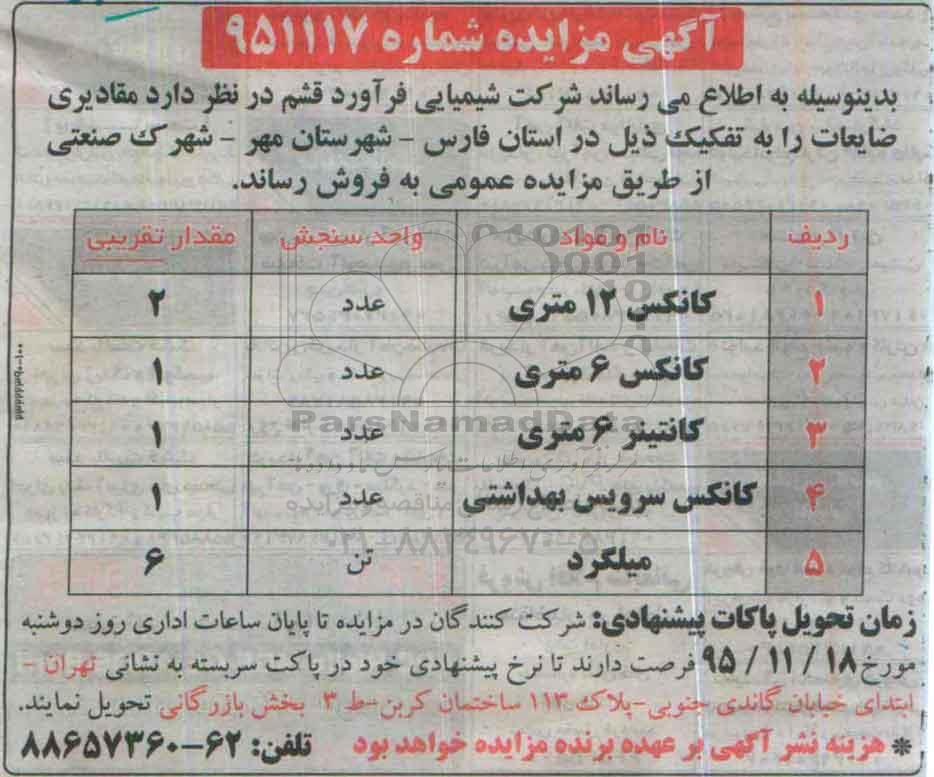 آگهی مزایده شماره ۹۵۱۱۱۷
بدینوسیله به اطلاع می رساند شرکت شیمیایی فرآورد قشم در نظر دارد مقادیری
ضایعات را به تفکیک ذیل در استان فارس - شهرستان مهر - شهرک صنعتی
از طریق مزایده عمومی به فروش رساند.
ردیف نام و مواد واحد سنجش مقدار تقریبی
۱ کانکس ۱۲ متری عدد ۲
۲ کانکس ۶ متری عدد ۱
۳ کانتینر ۶ متری عدد ۱
۴ کانکس سرویس بهداشتی عدد ۱
۵ میلگرد تن ۶
زمان تحویل پاکات پیشنهادی: شرکت کنندگان در مزایده تا پایان ساعات اداری روز دوشنبه
مورخ ۱۸ / ۱۱ / ۹۵ فرصت دارند تا نرخ پیشنهادی خود در پاکت سربسته به نشانی تهران -
ابتدای خیابان گاندی جنوبی-پلاک ۱۱۳ ساختمان کربن-ط ۳ بخش بازرگانی تحویل نمایند.
* هزینه نشر آگهی بر عهده برنده مزایده خواهد بود تلفن: ۶۲-۸۸۶۵۷۳۶۰
ParsNamadData